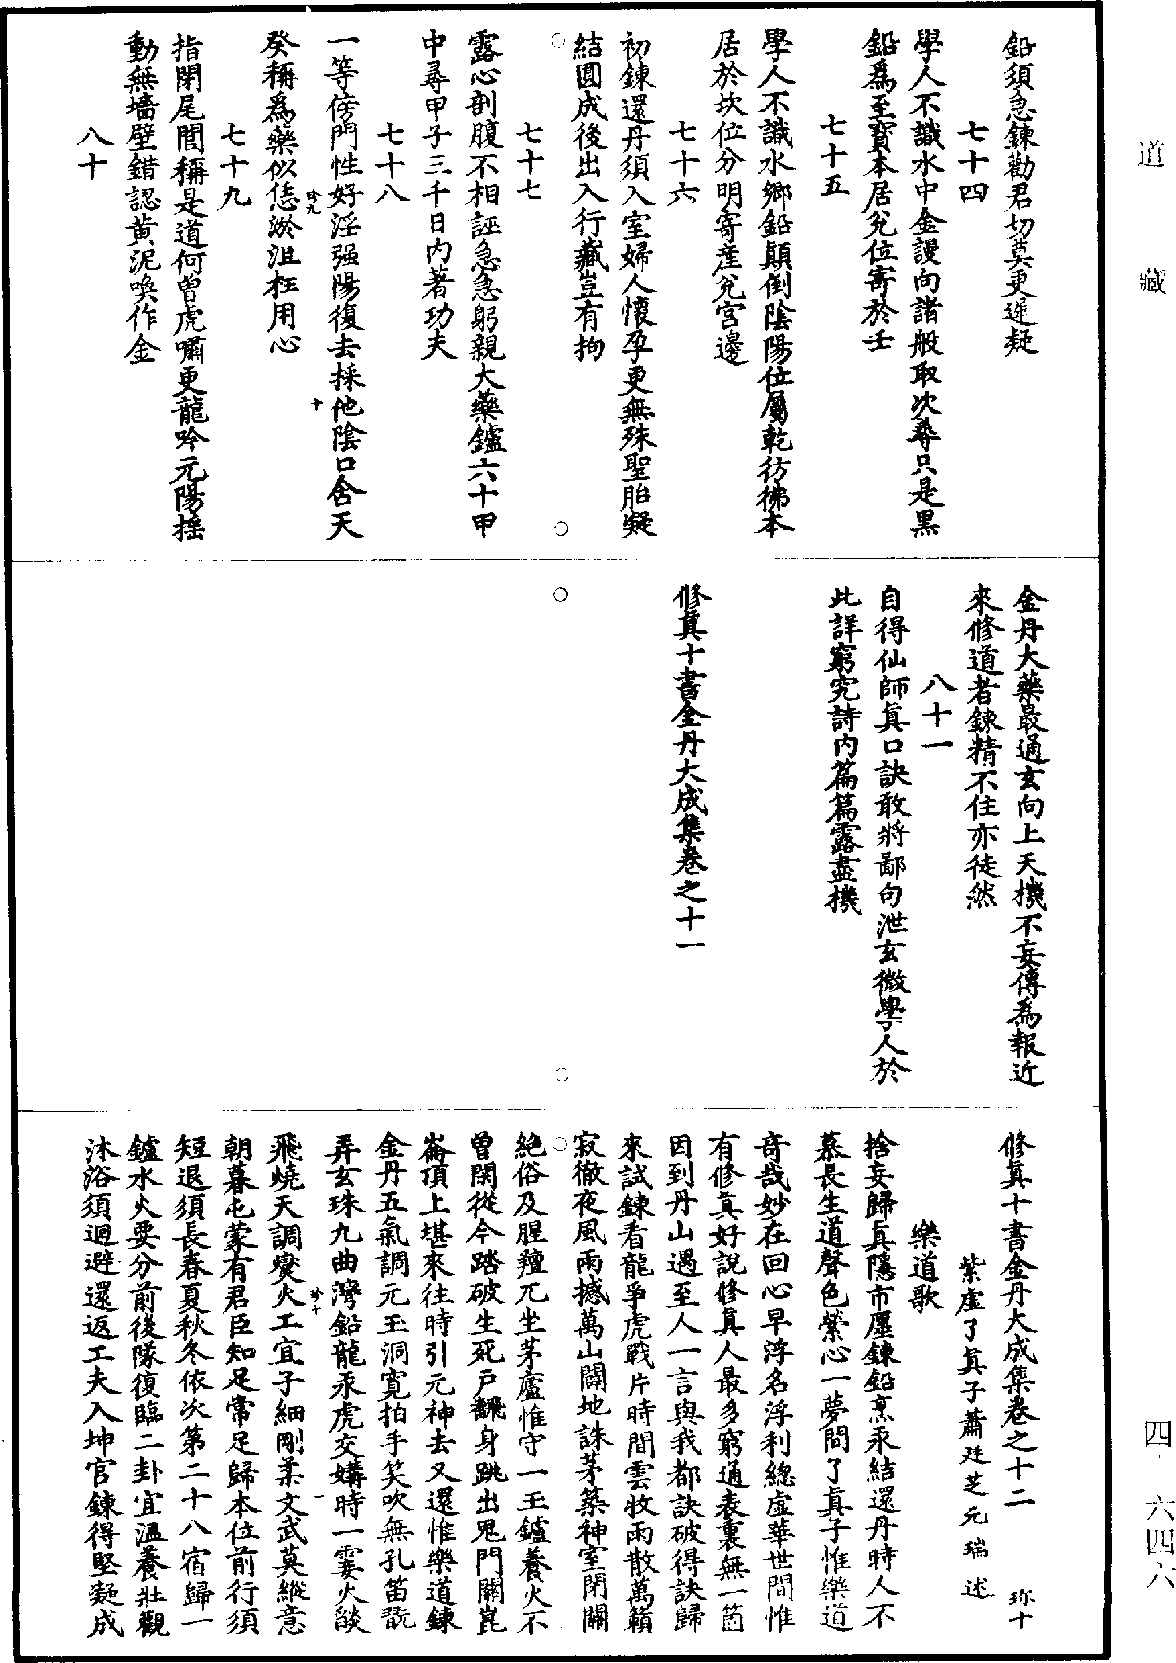 道藏
四·六四六
鉛須急鍊勸君切莫更遲疑
七十四
學人不識水中金謾向諸般取次尋只是黑
鉛為至寶本居兌位寄於壬
七十五
學人不識水鄉鉛顛倒陰陽位屬乾彷彿本
居於坎位分明寄產兌宮邊
七十六
初鍊還丹須入室婦人懷孕更無殊聖胎凝
結圓成後出入行藏豈有拘
七十七
露心剖腹不相誣急急躬親大藥鑪六十甲
中尋甲子三千日內著功夫
七十八
一等傍門性好淫强陽復去採他陰口含天
癸稱為藥似恁淤沮枉用心
七十九
指閉尾閭稱是道何曾虎嘯更龍吟元陽搖
動無墻壁錯認黃泥喚作金
八十
金丹大藥最通玄向上天機不妄傳為報近
來修道者鍊精不住亦徒然
八十一
自得仙師真口訣敢將鄙句泄玄微學人於
此詳窮究詩內篇篇露盡機
修真十書金丹大成集卷之十一
修真十書金丹大成集卷之十二 珎十
紫虛了真子蕭廷芝元瑞述
樂道歌
捨妄歸真隱市廛鍊鉛烹汞結還丹時人不
慕長生道聲色縈心一夢間了真子惟樂道
奇哉妙在回心早浮名浮利總虛華世間惟
有修真好說修真人最多窮通表裏無一箇
因到丹山遇至人一言與我都訣破得訣歸
來試鍊看龍爭虎戰片時間雲收雨散萬籟
寂徹夜風雨撼萬山闢地誅茅築神室閉關
絕俗及腥羶兀坐茅廬惟守一玉鑪養火不
曾閑從今踏破生死戶飜身跳出鬼門關崑
崙頂上堪來往時引元神去又還惟樂道鍊
金丹五氣調元玉洞寬拍手笑吹無孔笛翫
弄玄珠九曲灣鉛龍汞虎交媾時一霎火燄
飛燒天調燮火工宜子細剛柔文武莫縱意
朝暮屯蒙有君臣知足常足歸本位前行須
短退須長春夏秋冬依次第二十八宿歸一
鑪水火要分前後隊復臨二卦宜溫養壯觀
沐浴須迴避還返工夫入坤宮鍊得堅凝成